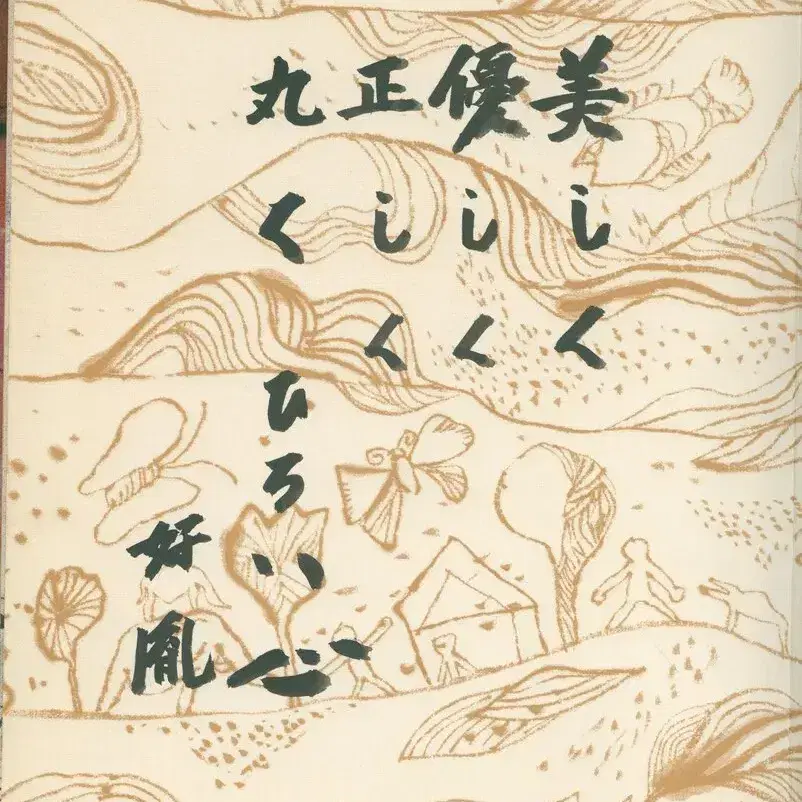 美しく
優しく
正しく
丸く ひろい心
好胤